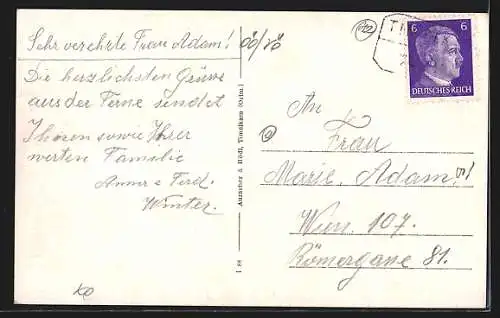 Sehr verehrte Frau Adam!
Die herzlichsten Grüsse
aus der Ferne sendet
Ihnen sowie Ihrer
werten Familie
Anna & Ferd.
Winter.
Auzucher & Rödl,
I 88
6 6
DEUTSCHES REICH
An
Frau
Marie, Adam
Wien 107.
Römergasse 81.